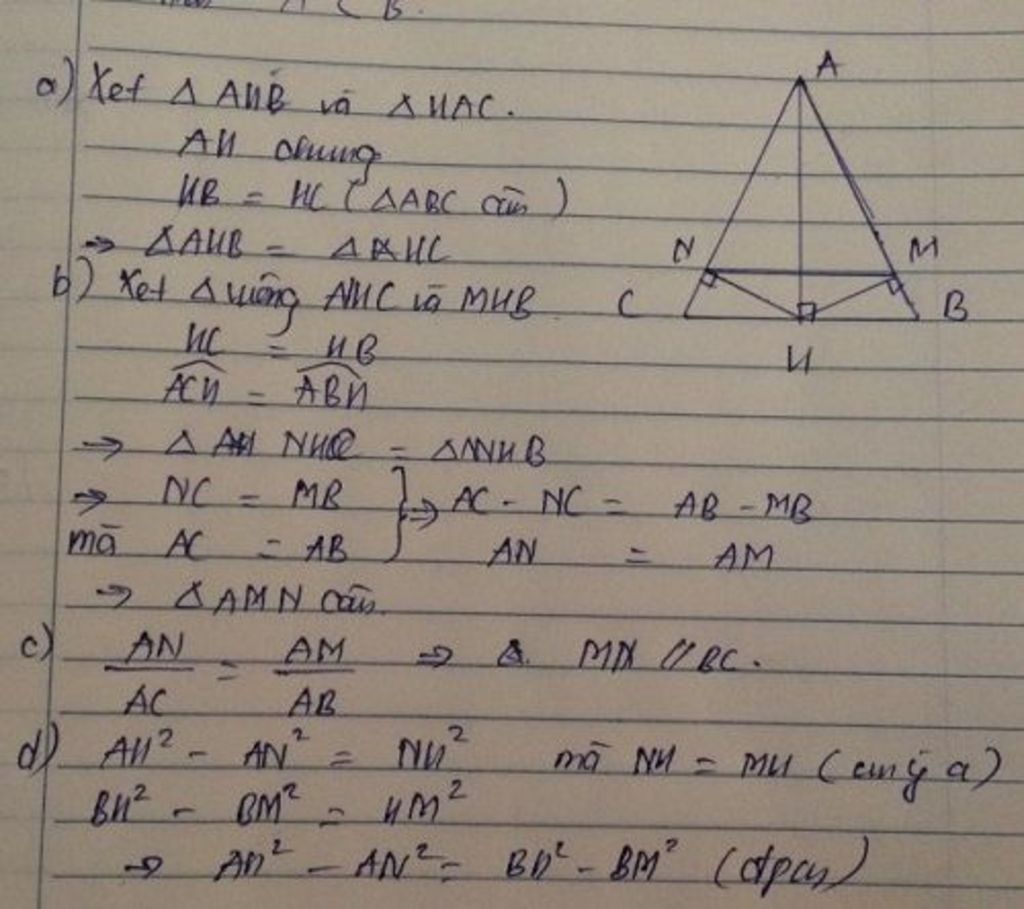 A C B.
a) Xét △AHB và △HAC.
AH chung
HB = HC (△ABC cân)
⇒ △AHB = △AHC
b) Xét △vuông NHC và MHB
HC = HB
ACH = ABH
⇒ △ NHC = △MHB
⇒ NC = MB } ⇒ AC - NC = AB - MB
mà AC = AB AN = AM
⇒ △AMN cân.
c) AN/AC = AM/AB ⇒ MN // BC.
d) AH² - AN² = NH² mà NH = MH (cm ý a)
BH² - BM² = HM²
⇒ AH² - AN² = BH² - BM² (đpcm)
A
N
M
C
B
H